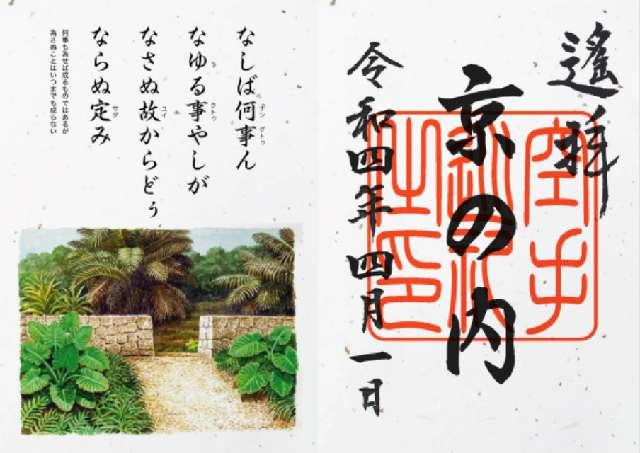 遙拝
京の内
令和四年四月一日
空手
之印
なしば何事ん
なゆる事やしが
なさぬ故からどぅ
ならぬ定み
何事も為せば成るものではあるが
為さぬことはいつまでも成らない